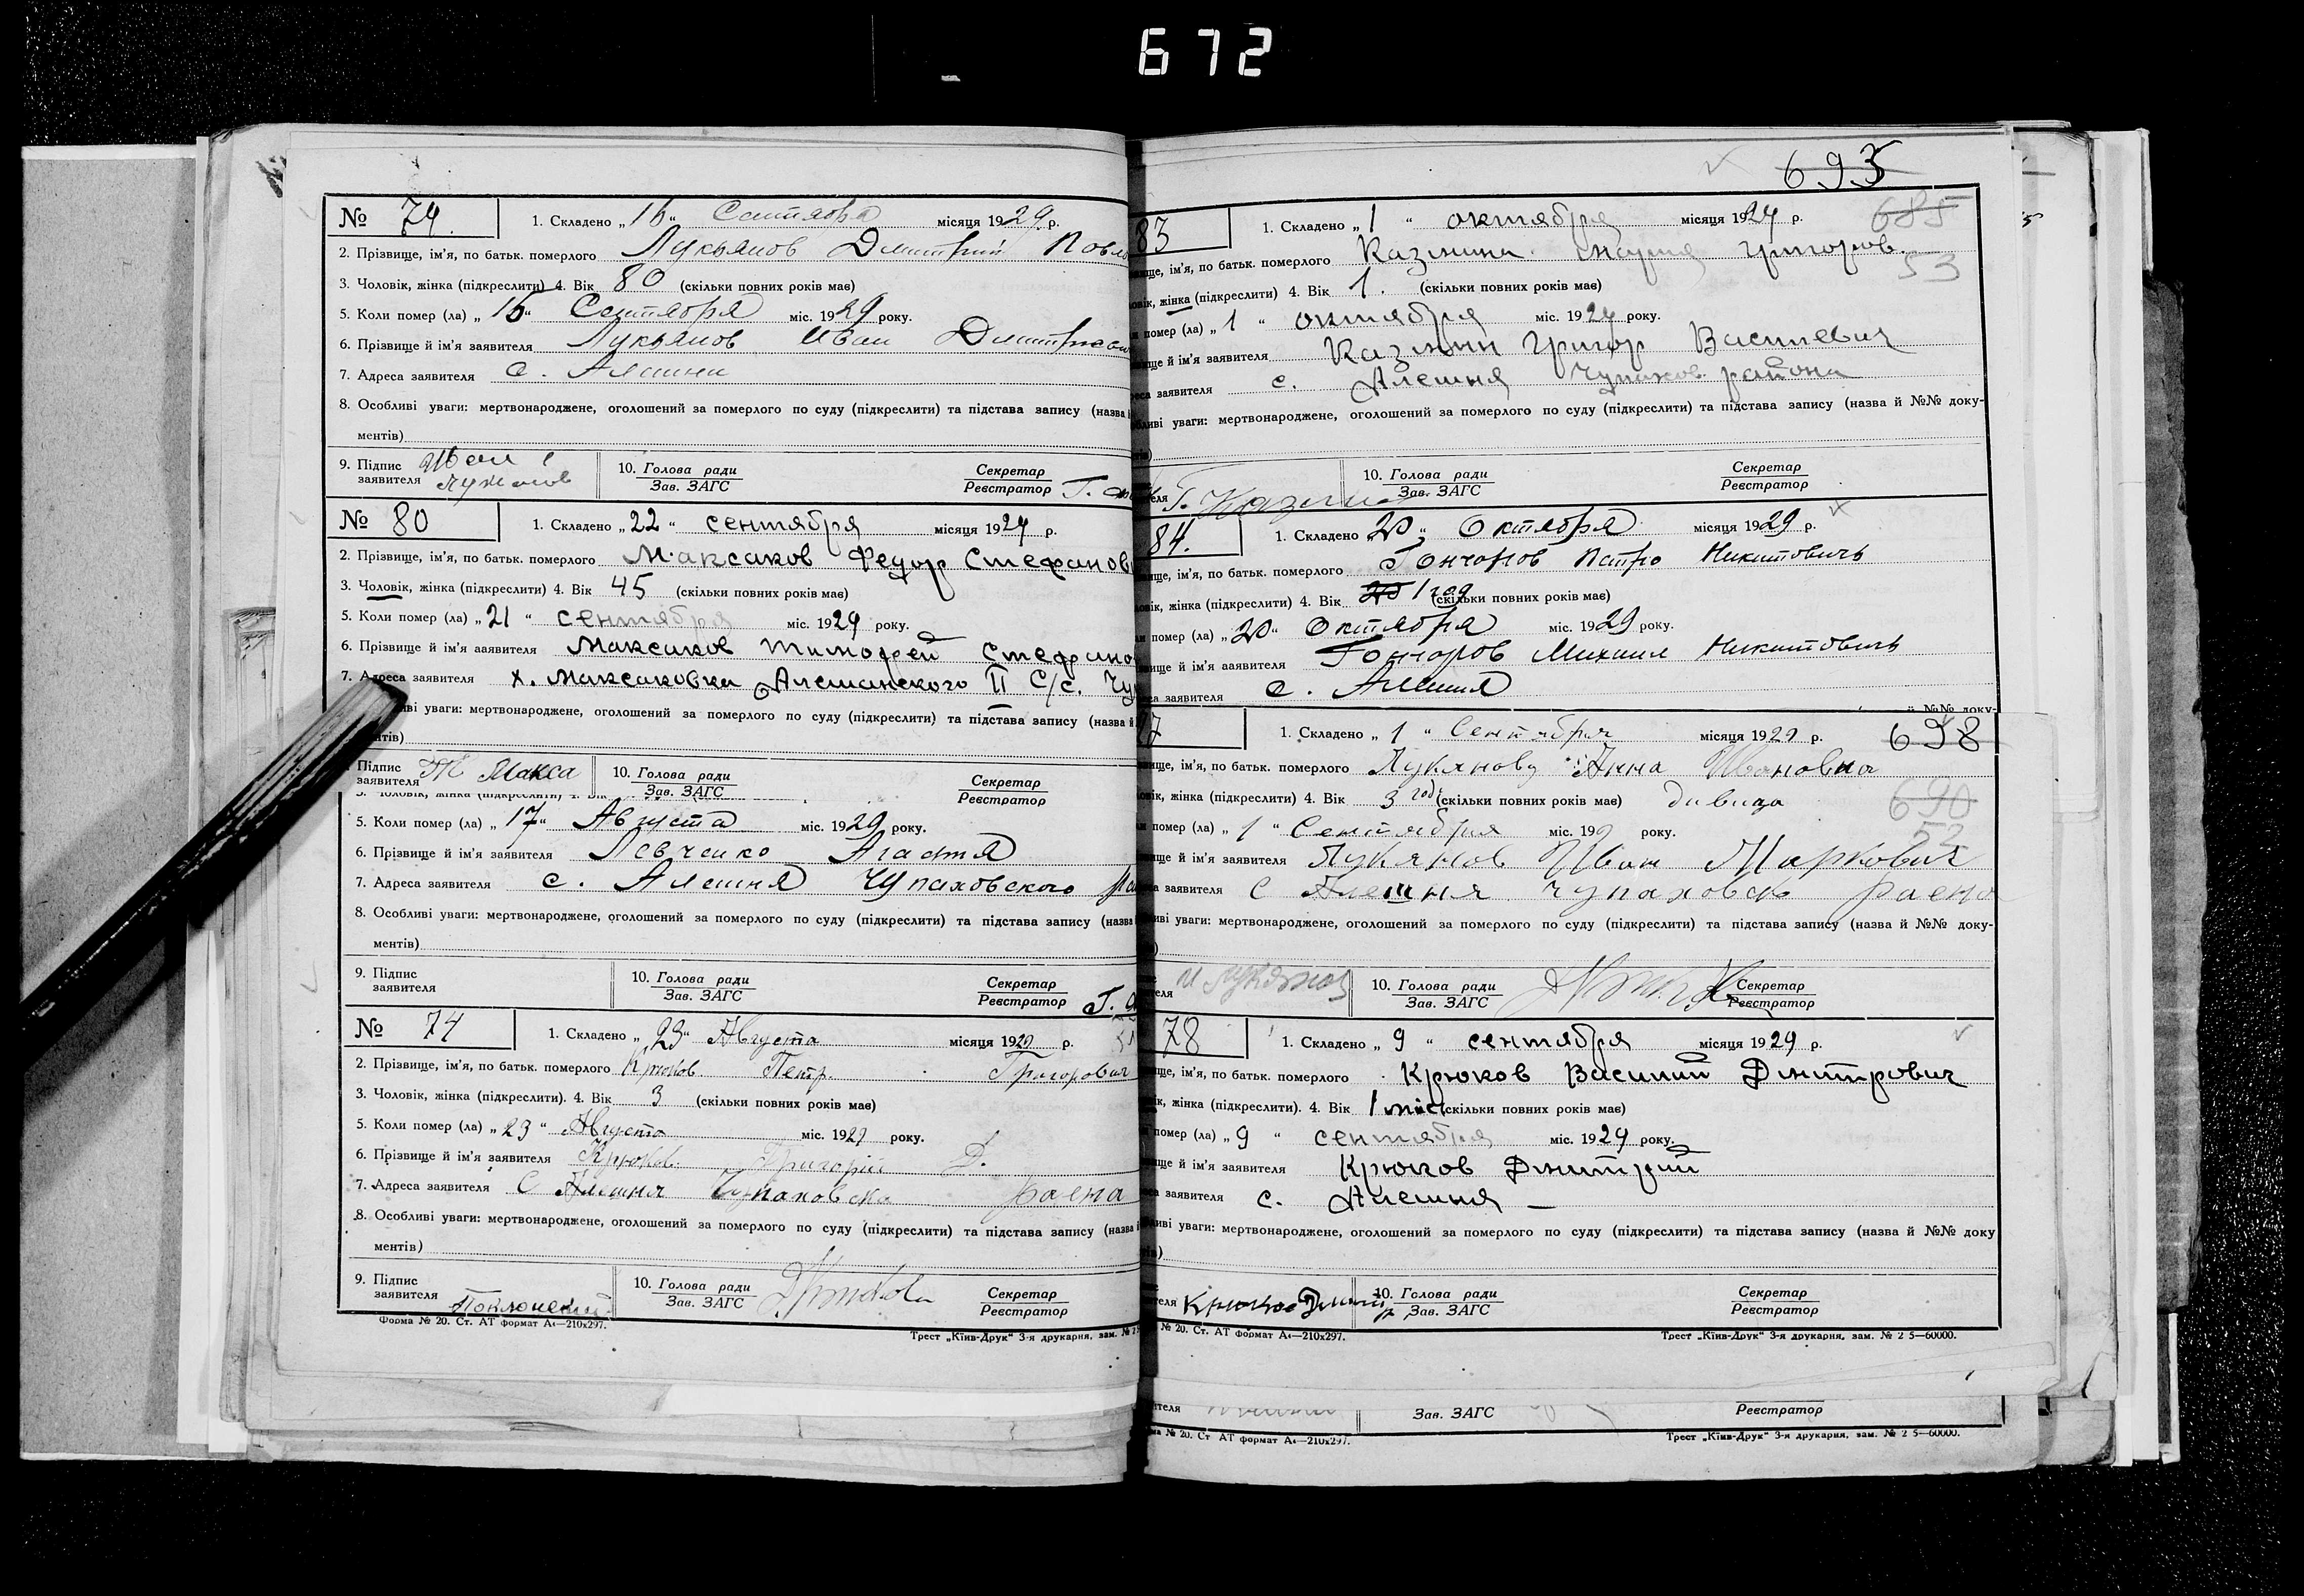 672
№ 79. 1. Складено „16“ Сентября місяця 1929 р.
2. Прізвище, ім'я, по батьк. померлого Лукьянов Дмитрий Павло
3. Чоловік, жінка (підкреслити) 4. Вік 80 (скільки повних років має)
5. Коли помер (ла) „15“ Сентября міс. 1929 року.
6. Прізвище й ім'я заявителя Лукьянов Иван Дмитриеви
7. Адреса заявителя с. Алешня
8. Особливі уваги: мертвонароджене, оголошений за померлого по суду (підкреслити) та підстава запису (назва й
ментів)
9. Підпис заявителя Иван 10. Голова ради Секретар
Зав. ЗАГС Реєстратор
№ 80 1. Складено „22“ сентября місяця 1929 р.
2. Прізвище, ім'я, по батьк. померлого Максаков Федор Стефанов
3. Чоловік, жінка (підкреслити) 4. Вік 45 (скільки повних років має)
5. Коли помер (ла) „21“ сентября міс. 1929 року.
6. Прізвище й ім'я заявителя Максаков Тимофей Стефано
7. Адреса заявителя х. Максаковка Алешанского II С/с. Чу
иві уваги: мертвонароджене, оголошений за померлого по суду (підкреслити) та підстава запису (назва й
нтів)
Підпис заявителя Т Макса 10. Голова ради Секретар
Зав. ЗАГС Реєстратор
5. Коли помер (ла) „17“ Августа міс. 1929 року.
6. Прізвище й ім'я заявителя Левченко Агафия
7. Адреса заявителя с. Алешня Чупаховского
8. Особливі уваги: мертвонароджене, оголошений за померлого по суду (підкреслити) та підстава запису (назва
ментів)
9. Підпис заявителя 10. Голова ради Секретар
Зав. ЗАГС Реєстратор
№ 74 1. Складено „23“ Августа місяця 1929 р.
2. Прізвище, ім'я, по батьк. померлого Крюков Петр Григорович
3. Чоловік, жінка (підкреслити). 4. Вік 3 (скільки повних років має)
5. Коли помер (ла) „23“ Августа міс. 1929 року.
6. Прізвище й ім'я заявителя Крюков Григорій Д.
7. Адреса заявителя С Алешня Чупаховско раена
8. Особливі уваги: мертвонароджене, оголошений за померлого по суду (підкреслити) та підстава запису (назва
ментів)
9. Підпис заявителя 10. Голова ради Секретар
Зав. ЗАГС Реєстратор
Форма № 20. Ст. АТ формат А4—210х297.
Трест „Київ-Друк“ 3-я друкарня, зам. №
693
685
53
83 1. Складено „1“ октября місяця 1929 р.
ище, ім'я, по батьк. померлого Казмина Мария Григоров.
овік, жінка (підкреслити) 4. Вік 1. (скільки повних років має)
помер (ла) „1“ октября міс. 1929 року.
ище й ім'я заявителя Казмин Григор Василевич
заявителя с. Алешня Чупахов. района
бливі уваги: мертвонароджене, оголошений за померлого по суду (підкреслити) та підстава запису (назва й №№ доку-
Г. Казми 10. Голова ради Секретар
Зав. ЗАГС Реєстратор
84. 1. Складено 20 „ Октября місяця 1929 р.
ище, ім'я, по батьк. померлого Гончаров Петро Никитовичь
овік, жінка (підкреслити) 4. Вік 1 год (скільки повних років має)
помер (ла) „20“ Октября міс. 1929 року.
ище й ім'я заявителя Гончаров Михаил Никитовичь
заявителя с. Алешня
№№ доку-
77 1. Складено „1“ Сентября місяця 1929 р. 698
ище, ім'я, по батьк. померлого Лукянову Анна Ивановна
690
52
овік, жінка (підкреслити) 4. Вік 3 год (скільки повних років має) дивица
помер (ла) „1“ Сентября міс. 199 року.
ище й ім'я заявителя Лукянов Иван Маркович
заявителя С Алешня Чупаховск раена
иві уваги: мертвонароджене, оголошений за померлого по суду (підкреслити) та підстава запису (назва й №№ доку-
И Лукянов 10. Голова ради Секретар
Зав. ЗАГС Реєстратор
78 1. Складено „9“ сентября місяця 1929 р.
ище, ім'я, по батьк. померлого Крюков Василий Дмитрович
ік, жінка (підкреслити). 4. Вік 1 міс (скільки повних років має)
помер (ла) „9“ сентября міс. 1929 року.
ище й ім'я заявителя Крюков Дмитрий
заявителя с. Алешня —
ливі уваги: мертвонароджене, оголошений за померлого по суду (підкреслити) та підстава запису (назва й №№ доку
Крюков Дмит 10. Голова ради Секретар
Зав. ЗАГС Реєстратор
№ 20. Ст. АТ формат А4—210х297.
Трест „Київ-Друк“ 3-я друкарня, зам. № 2 5—60000.
Зав. ЗАГС Реєстратор
№ 20. Ст АТ формат А4—210х297.
Трест „Київ-Друк“ 3-я друкарня, зам. № 2 5—60000.